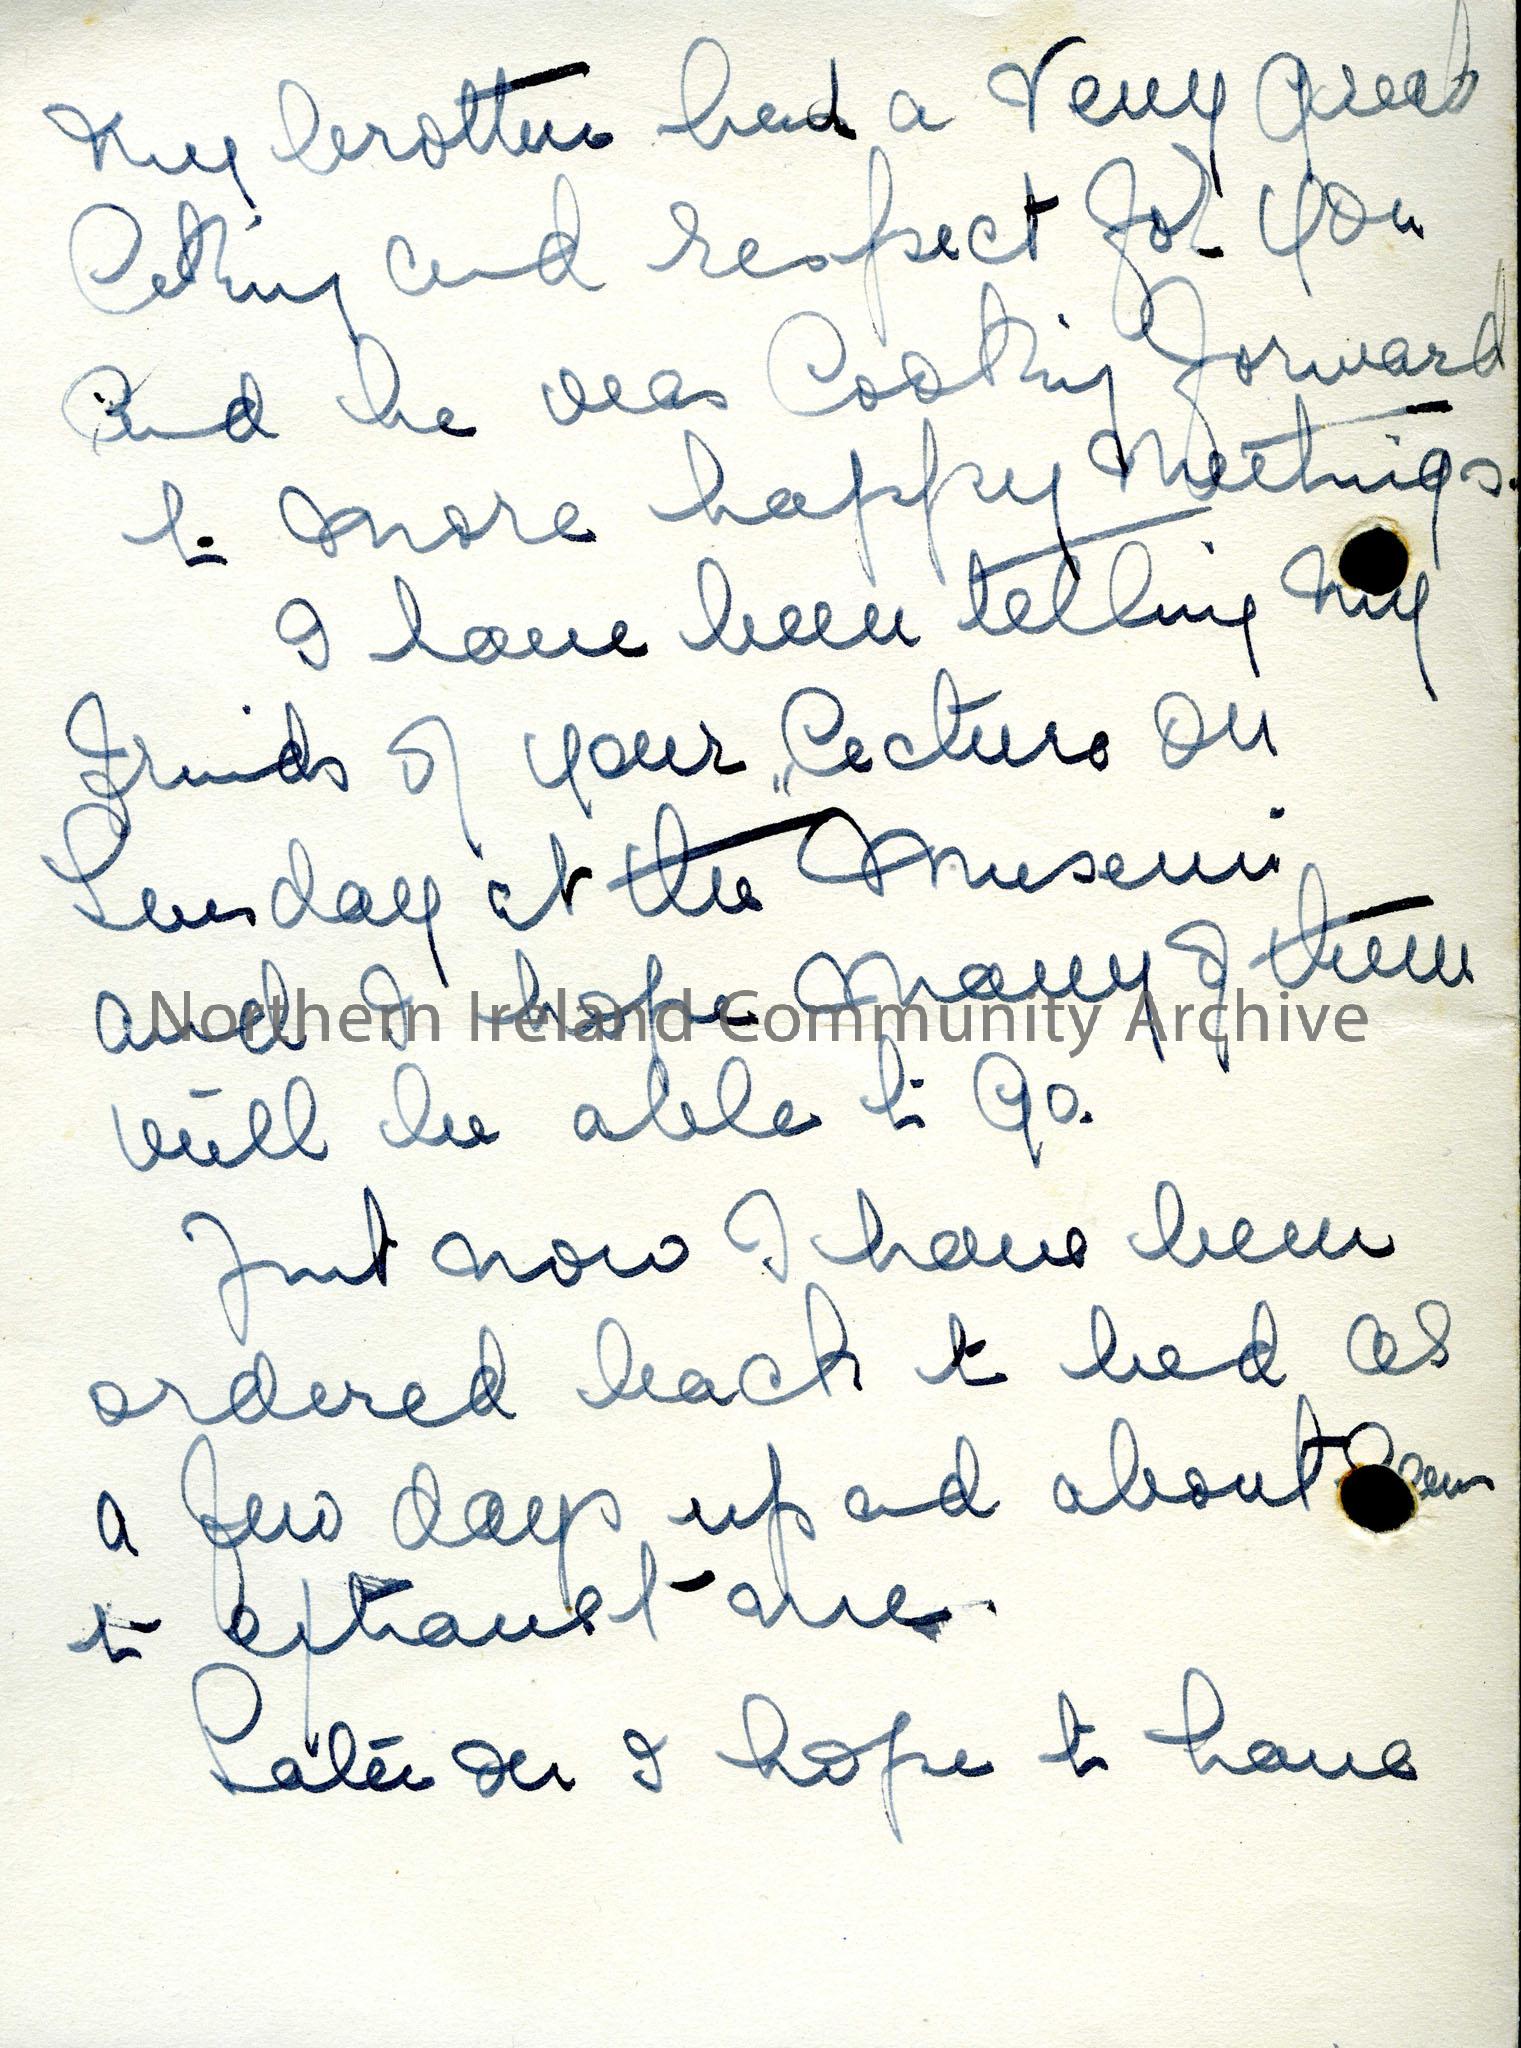 My brother had a very great
liking and respect for you
and he was looking forward
to more happy meetings.
I have been telling my
friends of your lecture on
Sunday at the Museum
and I hope many of them
will be able to go.
Northern Ireland Community Archive
Just now I have been
ordered back to bed as
a few days up and about
to exhaust me.
Later on I hope to have